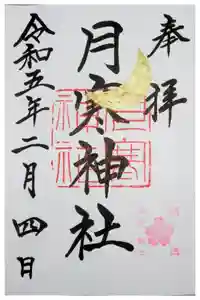 奉拝
月寒神社
令和五年二月四日